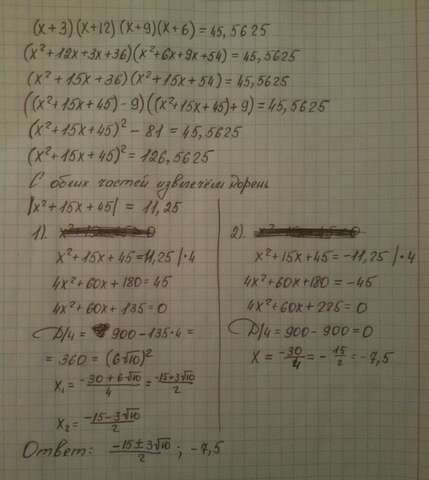 (x+3)(x+12)(x+9)(x+6)=45,5625
(x²+12x+3x+36)(x²+6x+9x+54)=45,5625
(x²+15x+36)(x²+15x+54)=45,5625
((x²+15x+45)-9)((x²+15x+45)+9)=45,5625
(x²+15x+45)²-81=45,5625
(x²+15x+45)²=126,5625
С обеих частей извлечём корень
|x²+15x+45|=11,25
1).
x²+15x+45=11,25 |·4
4x²+60x+180=45
4x²+60x+135=0
D/4=900-135·4=
=360=(6√10)²
x₁=(-30+6√10)/4=(-15+3√10)/2
x₂=(-15-3√10)/2
2).
x²+15x+45=-11,25 |·4
4x²+60x+180=-45
4x²+60x+225=0
D/4=900-900=0
x=-30/4=-15/2=-7,5
Ответ: (-15±3√10)/2; -7,5